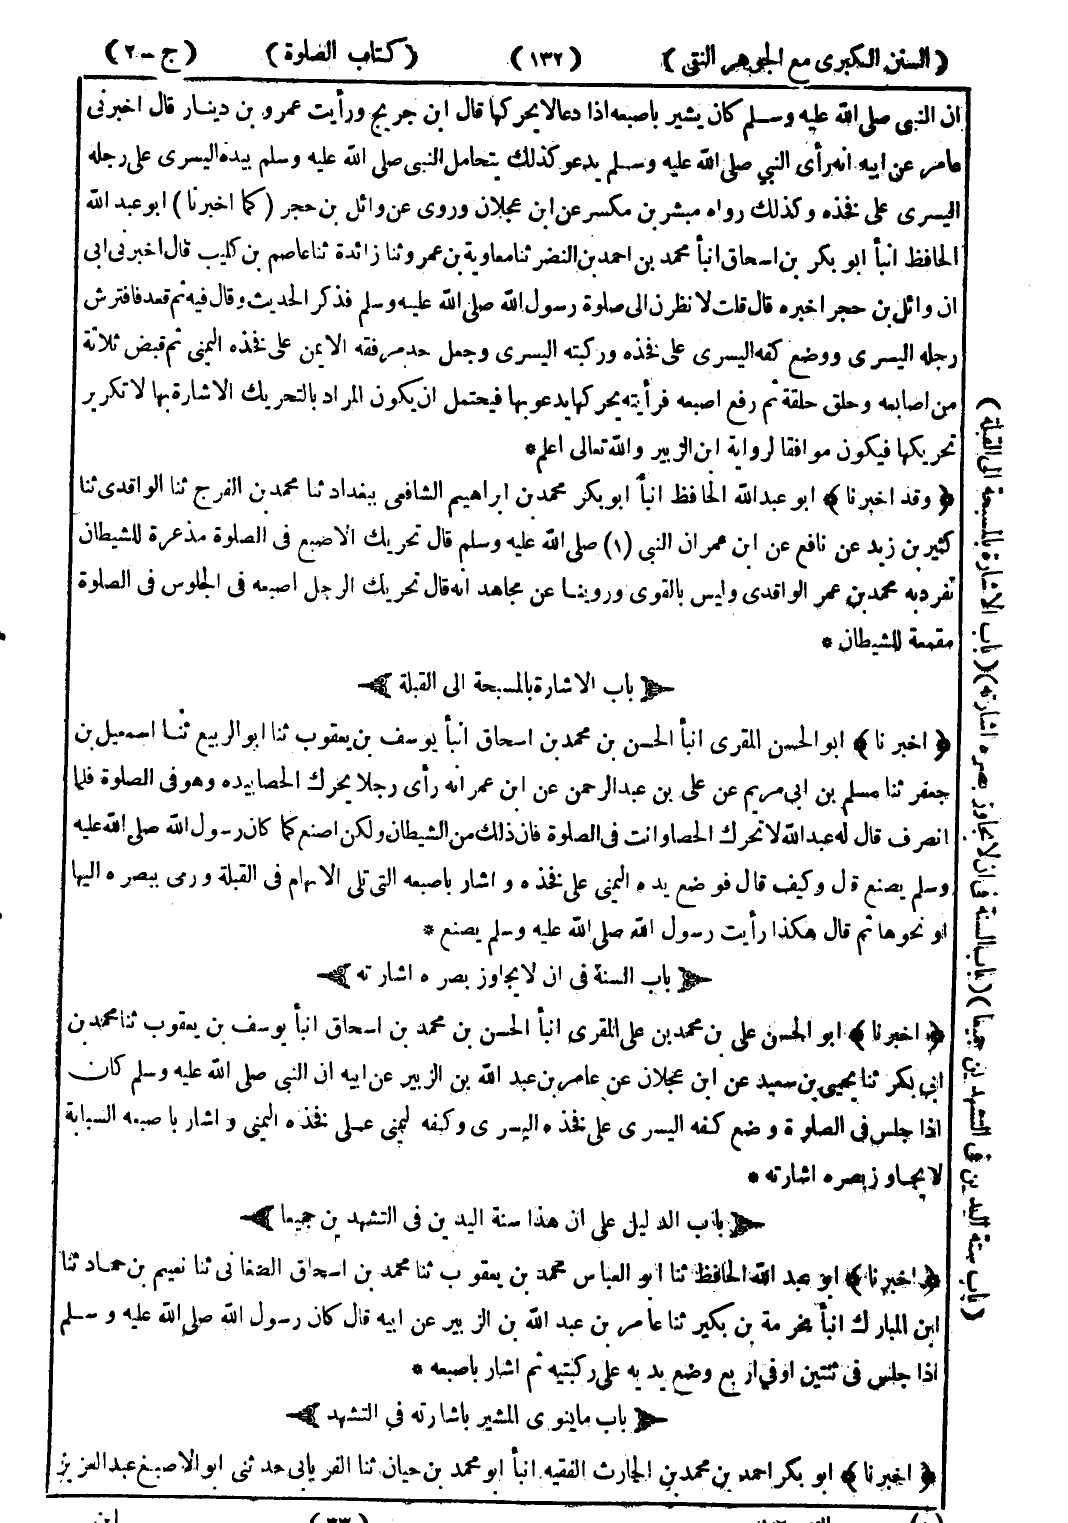 (السنن الكبرى مع الجوهر النقى) (١٣٢) (كتاب الصلوة) (ج - ٢)
ان النبى صلى الله عليه وسلم كان يشير باصبعه اذا دعا لا يحركها قال ابن جريج ورأيت عمرو بن دينار قال اخبرنى
عامر عن ابيه انه رأى النبي صلى الله عليه وسلم يدعو كذلك يتحامل النبى صلى الله عليه وسلم بيده اليسرى على رجله
اليسرى على فخذه وكذلك رواه مبشر بن مكسر عن ابن عجلان وروى عن وائل بن حجر (كما اخبرنا) ابو عبد الله
الحافظ انبأ ابو بكر بن اسحاق انبأ محمد بن احمد بن النضر ثنا معاوية بن عمرو ثنا زائدة ثنا عاصم بن كليب قال اخبرنى ابى
ان وائل بن حجر اخبره قال قلت لا نظرن الى صلوة رسول الله صلى الله عليه وسلم فذكر الحديث وقال فيه ثم قعد فافترش
رجله اليسرى ووضع كفه اليسرى على فخذه وركبته اليسرى وجعل حد مرفقه الايمن على فخذه اليمنى ثم قبض ثلاثة
من اصابعه وحلق حلقة ثم رفع اصبعه فرأيته يحركها يدعو بها فيحتمل ان يكون المراد بالتحريك الاشارة بها لا تكرير
تحريكها فيكون موافقا لرواية ابن الزبير والله تعالى اعلم *
﴿وقد اخبرنا﴾ ابو عبد الله الحافظ انبأ ابو بكر محمد بن ابراهيم الشافعى ببغداد ثنا محمد بن الفرج ثنا الواقدى ثنا
كثير بن زيد عن نافع عن ابن عمر ان النبي (١) صلى الله عليه وسلم قال تحريك الاصبع فى الصلوة مذعرة للشيطان
تفرد به محمد بن عمر الواقدى وليس بالقوى وروينا عن مجاهد انه قال تحريك الرجل اصبعه فى الجلوس فى الصلوة
مقمعة للشيطان *
باب الاشارة بالمسبحة الى القبلة
﴿اخبرنا﴾ ابو الحسن المقرى انبأ الحسن بن محمد بن اسحاق انبأ يوسف بن يعقوب ثنا ابو الربيع ثنا اسمعيل بن
جعفر ثنا مسلم بن ابى مريم عن على بن عبد الرحمن عن ابن عمر انه رأى رجلا يحرك الحصا بيده وهو فى الصلوة فلما
انصرف قال له عبد الله لا تحرك الحصا وانت فى الصلوة فان ذلك من الشيطان ولكن اصنع كما كان رسول الله صلى الله عليه
وسلم يصنع قال وكيف قال فوضع يده اليمنى على فخذه واشار باصبعه التى تلى الابهام فى القبلة ورمى ببصره اليها
او نحوها ثم قال هكذا رأيت رسول الله صلى الله عليه وسلم يصنع *
باب السنة فى ان لا يجاوز بصره اشارته
﴿اخبرنا﴾ ابو الحسن على بن محمد بن على المقرى انبأ الحسن بن محمد بن اسحاق انبأ يوسف بن يعقوب ثنا محمد بن
ابي بكر ثنا يحيى بن سعيد عن ابن عجلان عن عامر بن عبد الله بن الزبير عن ابيه ان النبى صلى الله عليه وسلم كان
اذا جلس فى الصلوة وضع كفه اليسرى على فخذه اليسرى وكفه ليمنى على فخذه اليمنى واشار باصبعه السبابة
لا يجاوز بصره اشارته *
باب الدليل على ان هذا سنة اليدين فى التشهدين جميعا
﴿اخبرنا﴾ ابو عبد الله الحافظ ثنا ابو العباس محمد بن يعقوب ثنا محمد بن اسحاق الصغانى ثنا نعيم بن حماد ثنا
ابن المبارك انبأ مخرمة بن بكير ثنا عامر بن عبد الله بن الزبير عن ابيه قال كان رسول الله صلى الله عليه وسلم
اذا جلس فى ثنتين او في اربع وضع يديه على ركبتيه ثم اشار باصبعه *
باب ما ينوى المشير باشارته في التشهد
﴿اخبرنا﴾ ابو بكر احمد بن محمد بن الحارث الفقيه انبأ ابو محمد بن حيان ثنا الفريابى حدثنى ابو الاصبغ عبد العزيز
(باب الاشارة بالمسبحة الى القبلة) (باب السنة فى ان لا يجاوز بصره اشارته) (باب سنة اليدين فى التشهدين جميعا)
(٣٣) ابن